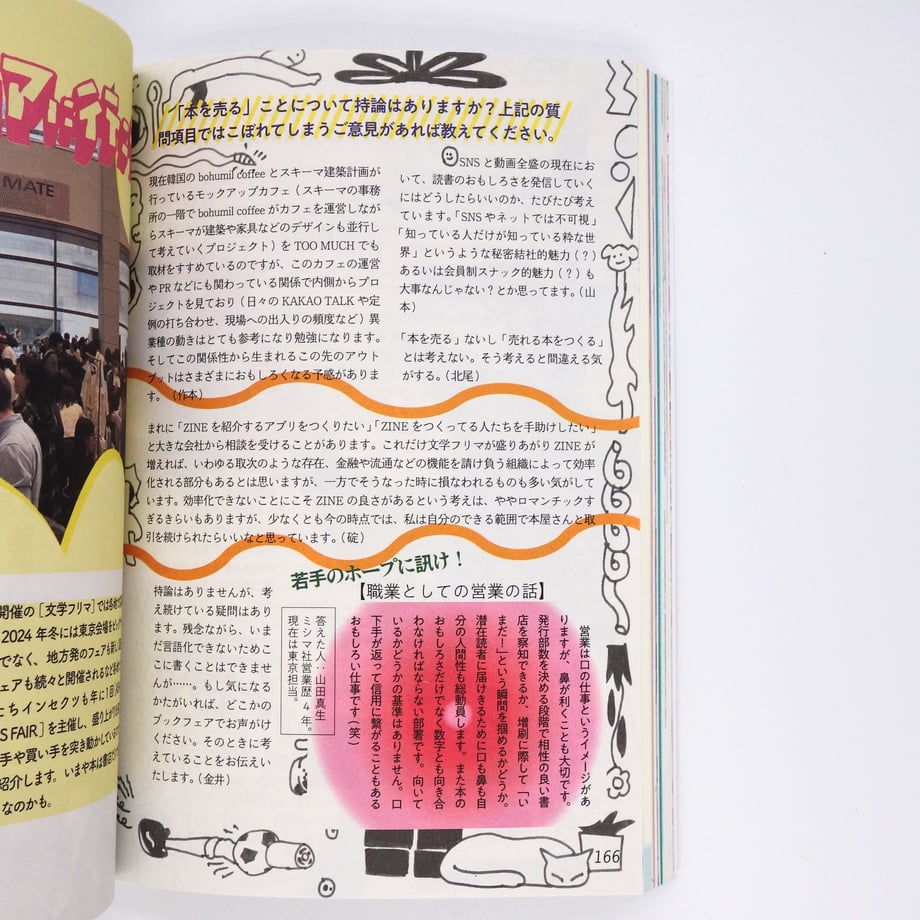 アに行こ
MATE
開催の［文学フリマ］では各地で
2024年冬には東京会場をビッグ
でなく、地方発のフェアも新し
フェアも続々と開催されるなど各地
たちインセクツも年に1回「
S FAIR］を主催し、盛り上がり
手や買い手を突き動かしている
紹介します。いまや本は書店だけ
なのかも。
「「本を売る」ことについて持論はありますか？上記の質
問項目ではこぼれてしまうご意見があれば教えてください。
現在韓国の bohumil coffee とスキーマ建築計画が
行っているモックアップカフェ（スキーマの事務
所の一階で bohumil coffee がカフェを運営しなが
らスキーマが建築や家具などのデザインも並行し
て考えていくプロジェクト）を TOO MUCH でも
取材をすすめているのですが、このカフェの運営
や PR などにも関わっている関係で内側からプロ
ジェクトを見ており（日々の KAKAO TALK や定
例の打ち合わせ、現場への出入りの頻度など）異
業種の動きはとても参考になり勉強になります。
そしてこの関係性から生まれるこの先のアウト
プットはさまざまにおもしろくなる予感がありま
す。（作本）
SNS と動画全盛の現在にお
いて、読書のおもしろさを発信していく
にはどうしたらいいのか、たびたび考え
ています。「SNS やネットでは不可視」
「知っている人だけが知っている粋な世
界」というような秘密結社的魅力（？）
あるいは会員制スナック的魅力（？）も
大事なんじゃない？とか思ってます。（山
本）
「本を売る」ないし「売れる本をつくる」
とは考えない。そう考えると間違える気
がする。（北尾）
まれに「ZINE を紹介するアプリをつくりたい」「ZINE をつくってる人たちを手助けしたい」
と大きな会社から相談を受けることがあります。これだけ文学フリマが盛りあがり ZINE が
増えれば、いわゆる取次のような存在、金融や流通などの機能を請け負う組織によって効率
化される部分もあるとは思いますが、一方でそうなった時に損なわれるものも多い気がして
います。効率化できないことにこそ ZINE の良さがあるという考えは、ややロマンチックす
ぎるきらいもありますが、少なくとも今の時点では、私は自分のできる範囲で本屋さんと取
引を続けられたらいいなと思っています。（碇）
持論はありませんが、考
え続けている疑問はあり
ます。残念ながら、いま
だ言語化できないためこ
こに書くことはできませ
んが……。もし気になる
かたがいれば、どこかの
ブックフェアでお声がけ
ください。そのときに考
えていることをお伝えい
たします。（金井）
若手のホープに訊け！
【職業としての営業の話】
営業は口の仕事というイメージがあ
りますが、鼻が利くことも大切です。
発行部数を決める段階で相性の良い書
店を察知できるか、増刷に際して「い
まだー！」という瞬間を掴めるかどうか。
潜在読者に届けきるために口も鼻も自
分の人間性も総動員します。また本の
おもしろさだけでなく数字とも向き合
わなければならない部署です。向いて
いるかどうかの基準はありません。口
下手が返って信用に繋がることもある
おもしろい仕事です（笑）
答えた人：山田真生
ミシマ社営業歴4年。
現在は東京担当。
166